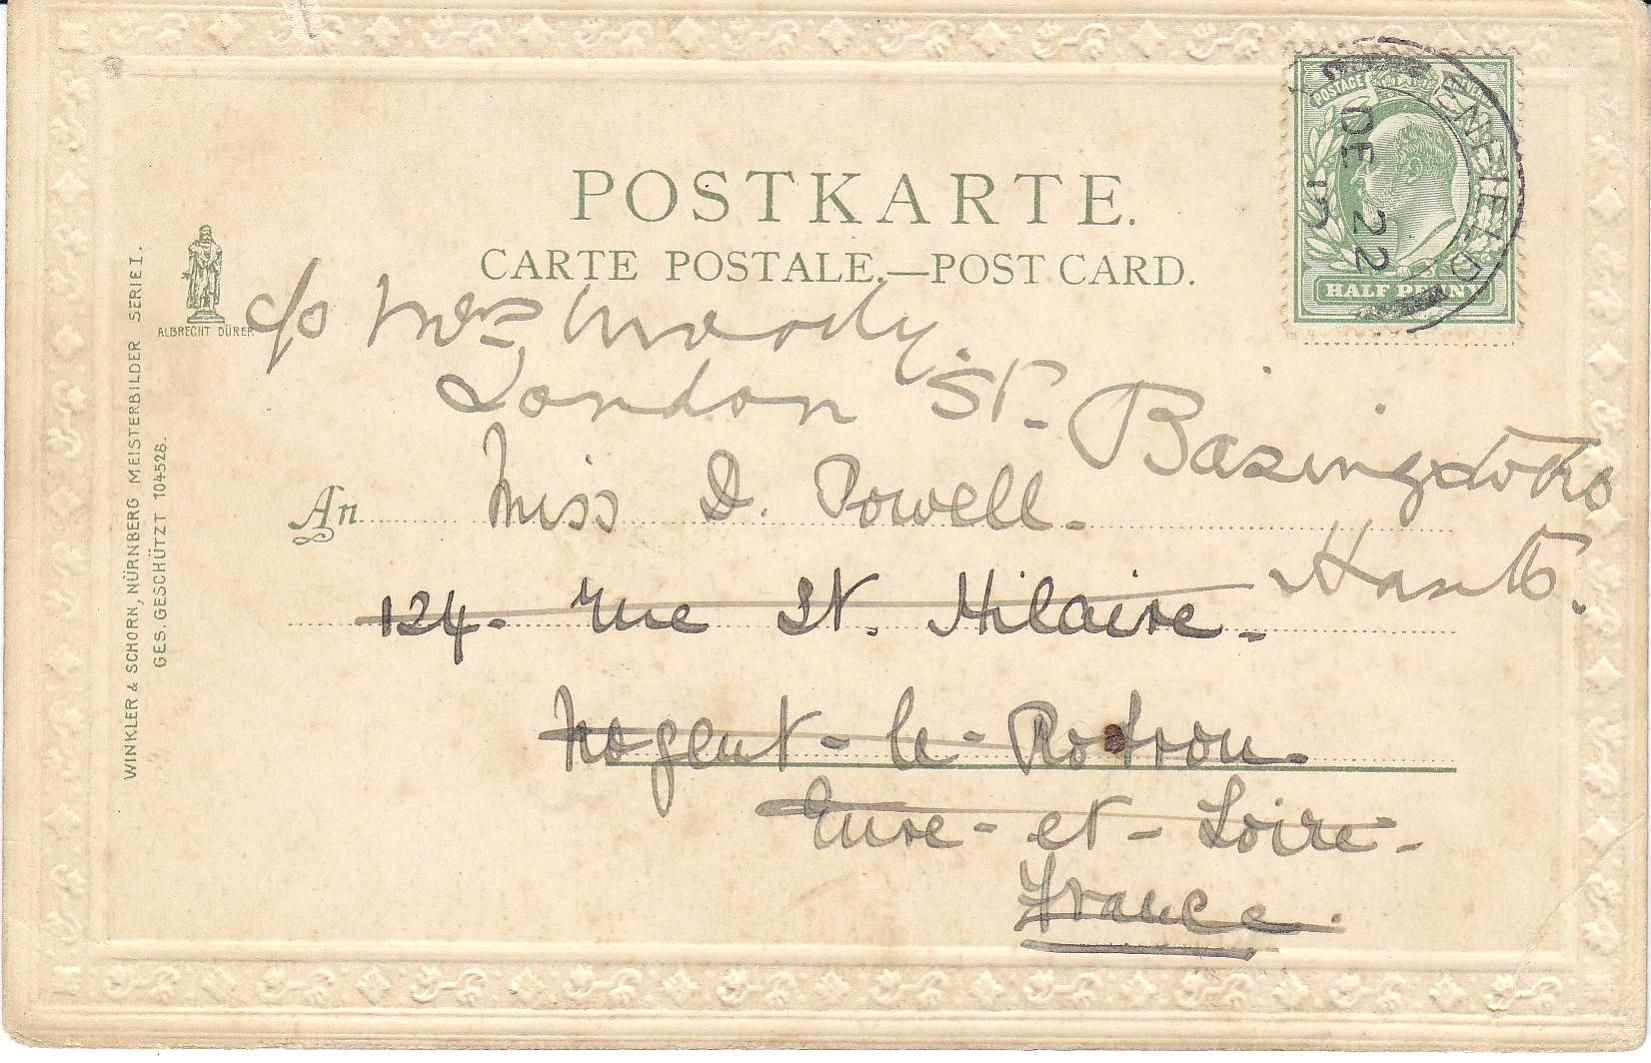 POSTKARTE.
CARTE POSTALE.—POST CARD.
WINKLER & SCHORN, NÜRNBERG MEISTERBILDER SERIE I.
GES. GESCHÜTZT 104528.
ALBRECHT DÜRER
POSTAGE
HALF PENNY
ENFIELD
DE 22
c/o Mrs Moody.
London St. Basingstoke
Hants.
An Miss D. Powell.
124. rue St. Hilaire.
Nogent-le-Rotrou.
Eure-et-Loire.
France.